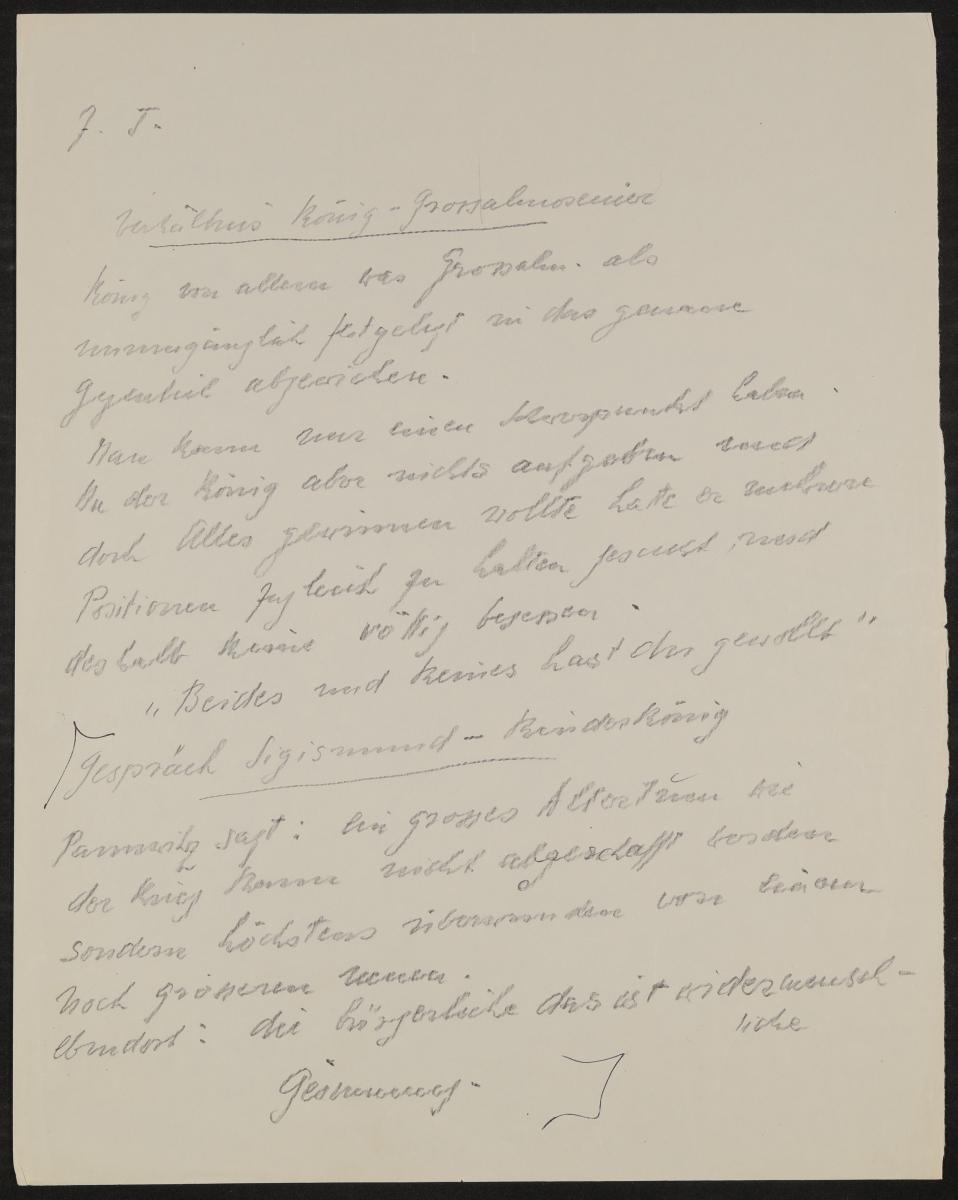 Z. T.
Verhältnis König - Grossalmosenier
König von allem was Grossalm. als
unumgänglich festgelegt in das genaue
Gegenteil abgewichen.
Man kann nur einen Schwerpunkt haben.
Da der König aber nichts aufgeben und
doch Alles gewinnen wollte hatte er mehrere
Positionen zugleich zu halten gesucht, und
deshalb keine völlig besessen.
„Beides und keines hast du gewollt"
Gespräch Sigismund - Kinderkönig
Pannwitz sagt: ein grosses Altertum wie
der Krieg kann nicht abgeschafft werden
sondern höchstens überwunden von einem
noch grösseren neuen.
ebendort: die bürgerliche das ist widermensch-
liche
Gesinnung.